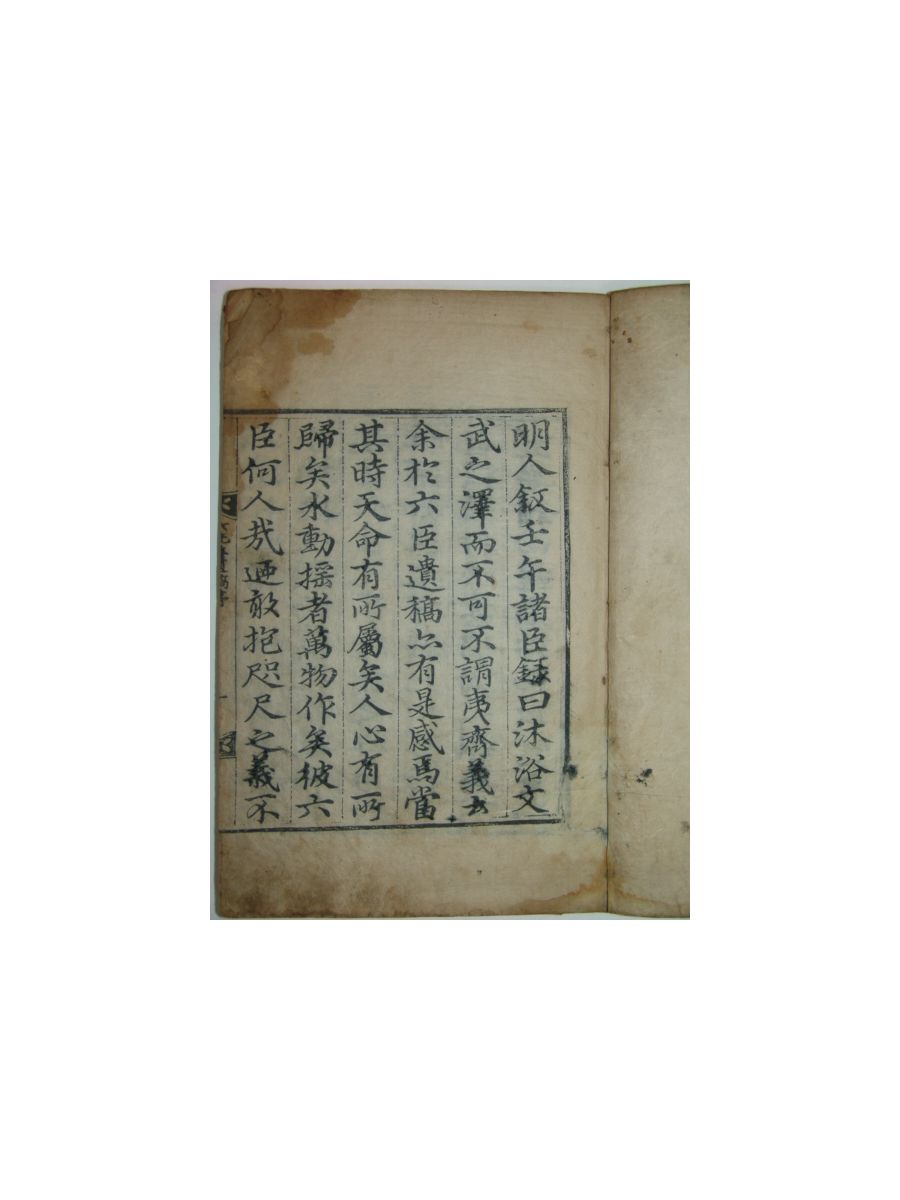 明人叙壬午諸臣録曰沐浴文
武之澤而不可不謂夷齊義士
余扵六臣遺稿亦有是感焉當
其時天命有所屬矣人心有所
歸矣水動揺者萬物作矣彼六
臣何人㦲廼敢抱咫尺之義不